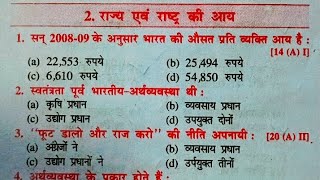 2. राज्य एवं राष्ट्र की आय
1. सन् 2008-09 के अनुसार भारत की औसत प्रति व्यक्ति आय है :
[14 (A) I]
(a) 22,553 रुपये (b) 25,494 रुपये
(c) 6,610 रुपये (d) 54,850 रुपये
2. स्वतंत्रता पूर्व भारतीय-अर्थव्यवस्था थी :
(a) कृषि प्रधान (b) व्यवसाय प्रधान
(c) उद्योग प्रधान (d) उपयुक्त दोनों
3. "फूट डालो और राज करो" की नीति अपनायी : [20 (A) II]
(a) अंग्रेजों ने (b) व्यवसाय प्रधान
(c) उद्योग प्रधानों ने (d) उर्पयुक्त तीनों
4. अर्थव्यवस्था के प्रकार होते हैं :